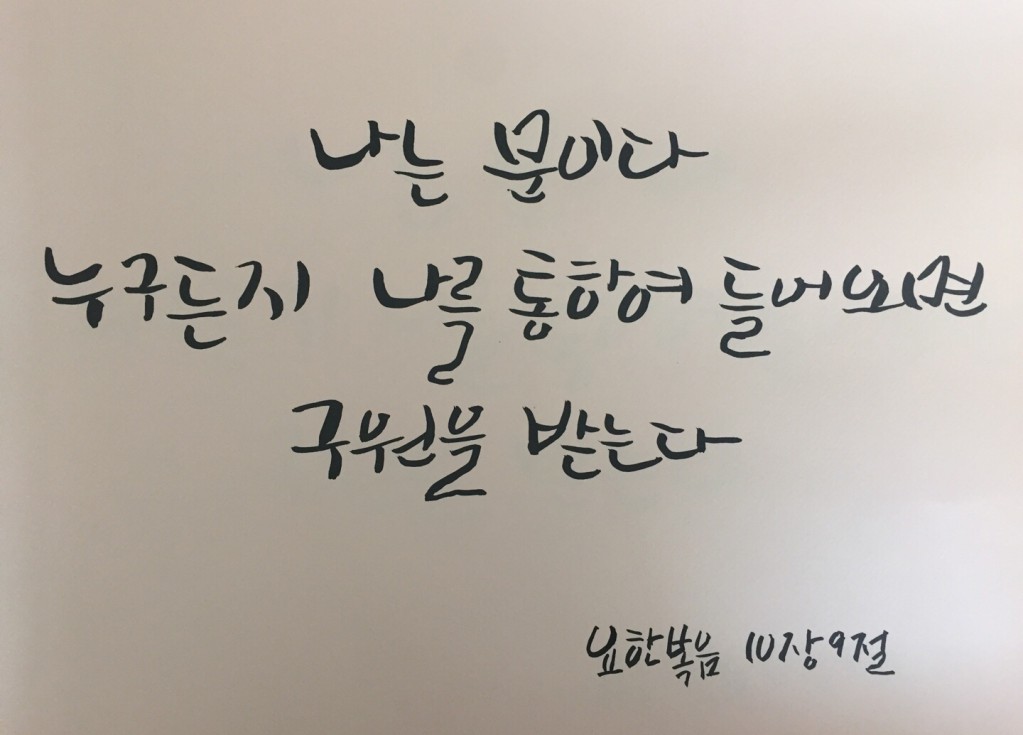 나는 문이다
누구든지 나를 통하여 들어오면
구원을 받는다
요한복음 10장9절